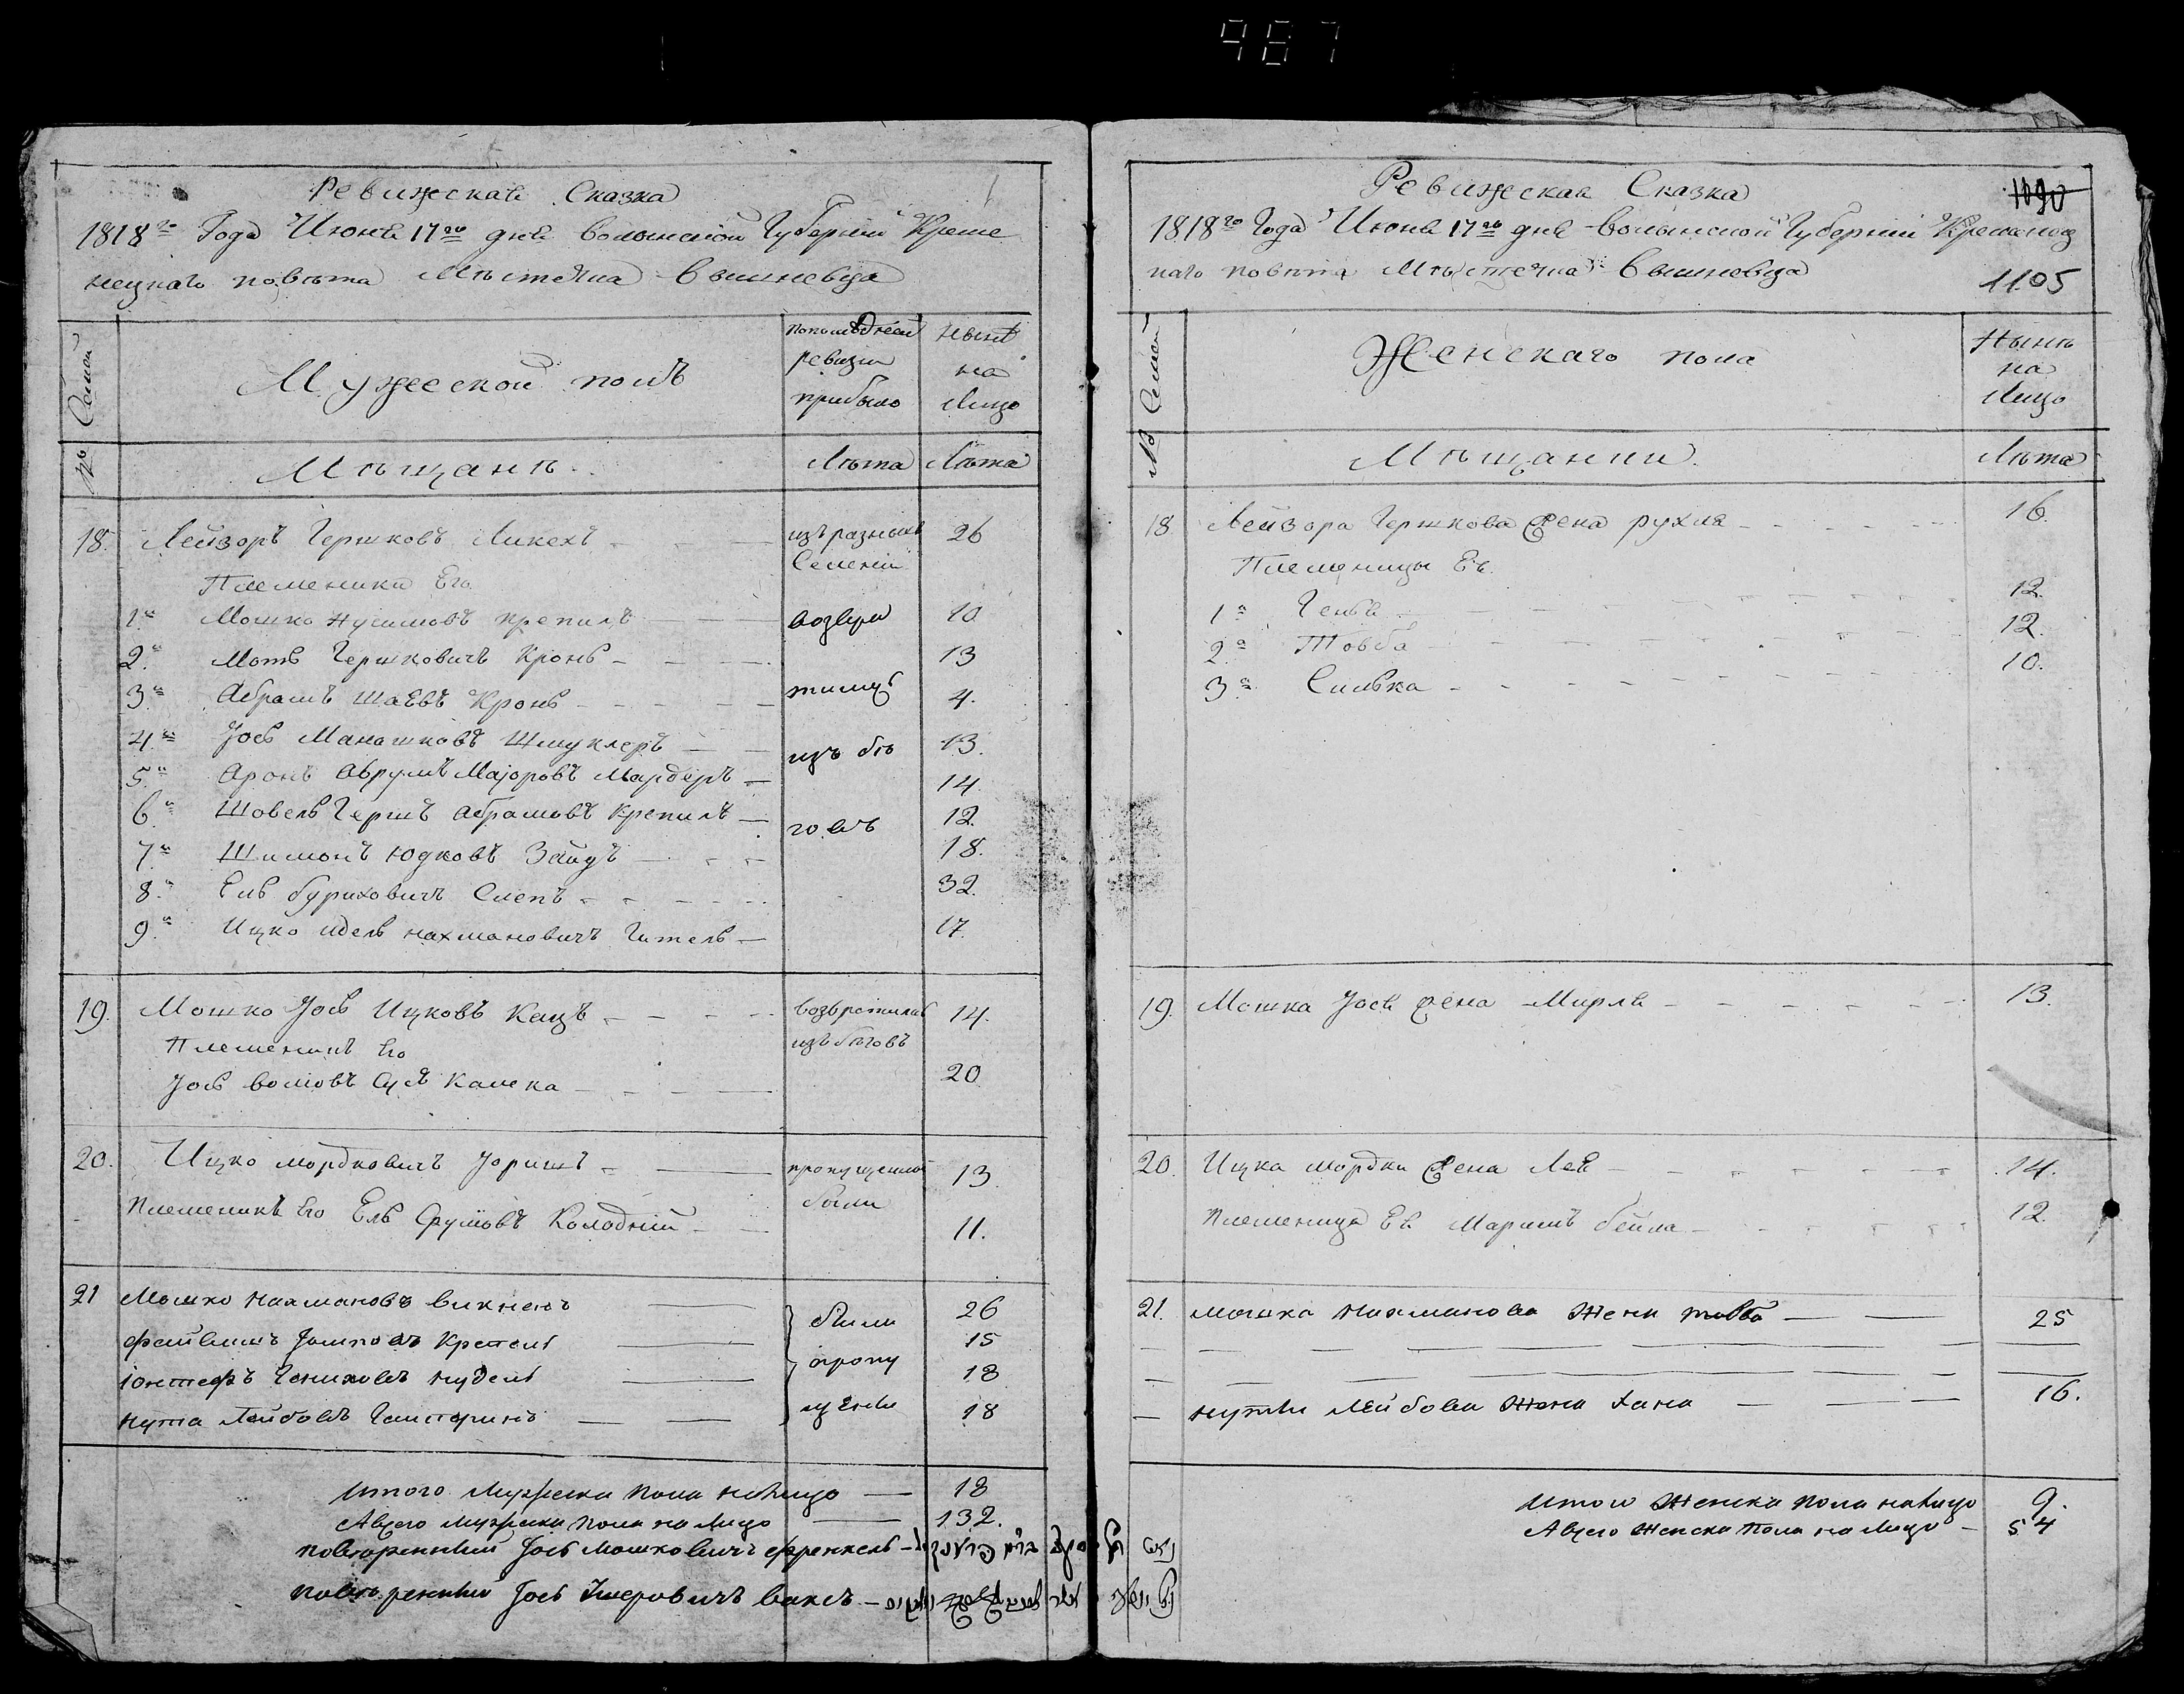 987
Ревижская Сказка
1818го Года Июня 17го дня Волынской Губернии Креме
нецкаго повѣта Мѣстечка Вишневца
№ Семей
Мужеской полъ
последней ревизии прибыло
Нынѣ на Лицо
Мѣщанѣ
Лѣта
Лѣта
18. Лейзоръ Гершковъ Ликехъ 26
изъ разныхъ Семеній
Племеники Его
1й Мошко Нухимовъ Крепилъ 10
2й Моть Гершковичъ Кронь 13
3й Абрамъ Шаевъ Кронь 4.
4й Іось Манашковъ Шмуклеръ 13.
5й Аронъ Аврумъ Маіоровъ Мардеръ 14.
6й Шовель Гершъ Абрамовъ Крепилъ 12.
7й Шимонъ Юдковъ Зайдъ 18.
8й Ель Буриховичъ Слепъ 32.
9й Ицко Идель Нахмановичъ Гитель 17.
возвра
тилис
изъ бѣ
говъ
19. Мошко Іось Ицковъ Кацъ 14.
возвратилис изъ бѣговъ
Племеникъ Его
Іось Волковъ Суся Калека 20
20. Ицко Мордковичъ Іоришъ 13.
пропущены были
Племеникъ Его Ель Срумовъ Колодній 11.
21 Мошко Нахмановъ Викненъ 26
Файвишъ Іошковъ Крепель 15
Іонтефъ Гениховъ Нудель 18
Нута Лейбовъ 18
были
пропу
щены
Итого Мужеска пола на лицо 18
А всего мужеска пола на лицо 132.
Поверенный Іось Мошковичъ Френкель
Поверенный Іось Ушеровичъ Ваксъ
Ревижская Сказка
1090
1818го Года Июня 17го дня Волынской Губернии Кременец
каго повѣта Мѣстечка Вишневца
1105
№ Семей
Женскаго пола
Нынѣ на Лицо
Мѣщанки.
Лѣта
18 Лейзора Гершкова Жена Рухля 16.
Племеницы Ея
1я Геня 12.
2я Товба 12.
3я Симка 10.
19. Мошка Іося Жена Мирля 13.
20. Ицка Мордки Жена Лея 14.
Племеница Ея Маріямъ Бейла 12.
21. Мошка Нахманова Жена Товба 25
Нутки Лейбова Жена Хана 16.
Итого Женска пола на лицо 9.
А всего Женска пола на лицо 54